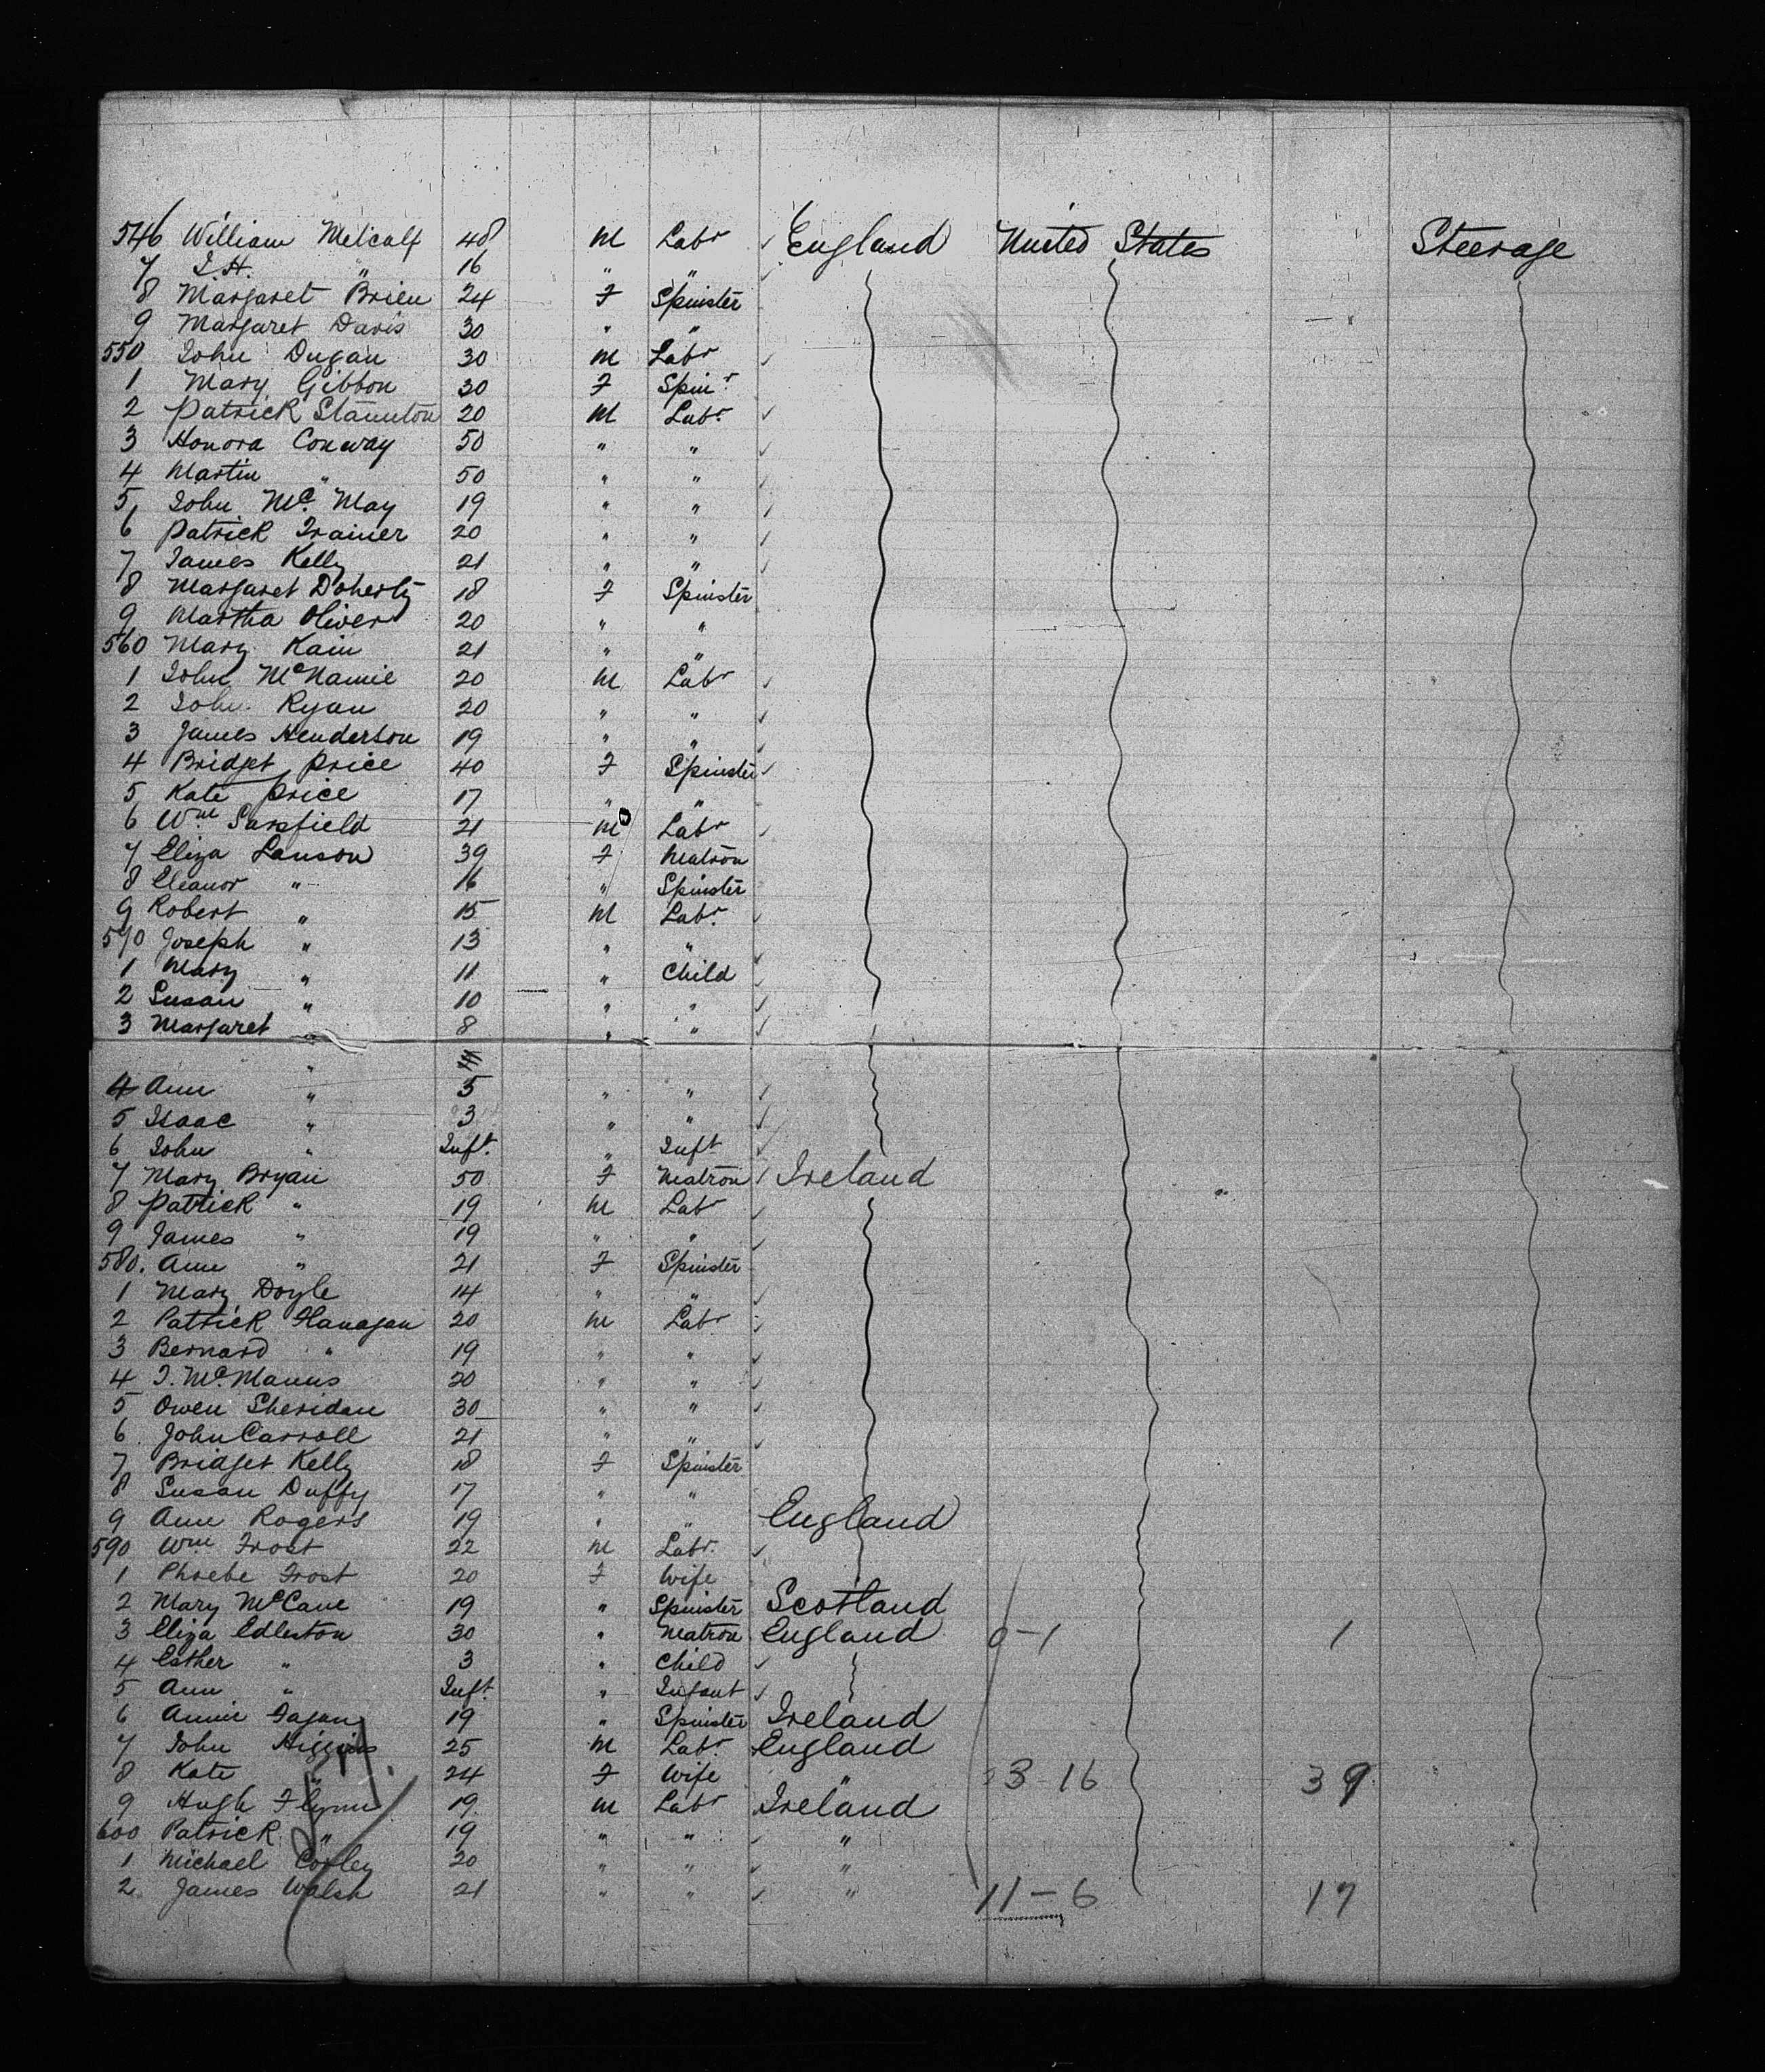 546 William Metcalf 48 M Labr England United States Steerage
7 J.H. " 16 " "
8 Margaret Brien 24 F Spinster
9 Margaret Davis 30 " "
550 John Dugan 30 M Labr
1 Mary Gibbon 30 F Spinr
2 Patrick Staunton 20 M Labr
3 Honora Conway 50 " "
4 Martin " 50 " "
5 John Mc. May 19 " "
6 Patrick Trainer 20 " "
7 James Kelly 21 " "
8 Margaret Doherty 18 F Spinster
9 Martha Oliver 20 " "
560 Mary Kain 21 " "
1 John McNamie 20 M Labr
2 John Ryan 20 " "
3 James Henderson 19 " "
4 Bridget Price 40 F Spinster
5 Kate Price 17 " "
6 Wm Sarsfield 21 M Labr
7 Eliza Lanson 39 F Matron
8 Eleanor " 16 " Spinster
9 Robert " 15 M Labr
570 Joseph " 13 " "
1 Mary " 11 " Child
2 Susan " 10 " "
3 Margaret " 8 " "
"
4 Ann " 5 " "
5 Isaac " 3 " "
6 John " Inft. " Inft
7 Mary Bryan 50 F Matron Ireland
8 Patrick " 19 M Labr
9 James " 19 " "
580. Ann " 21 F Spinster
1 Mary Doyle 14 " "
2 Patrick Flanagan 20 M Labr
3 Bernard " 19 " "
4 J. Mc.Manus 20 " "
5 Owen Sheridan 30 " "
6 John Carroll 21 " "
7 Bridget Kelly 18 F Spinster
8 Susan Duffy 17 " "
9 Ann Rogers 19 " " England
590 Wm Frost 22 M Labr.
1 Phoebe Frost 20 F Wife
2 Mary McCane 19 " Spinster Scotland
3 Eliza Edleston 30 " Matron England 0-1 1
4 Esther " 3 " Child
5 Ann " Inft. " Infant
6 Annie Fagan 19 " Spinster Ireland
7 John Higgins 25 M Labr. England
8 Kate " 24 F Wife " 3-16 39
9 Hugh Flynn 19 M Labr Ireland
600 Patrick " 19 " " "
1 Michael Corley 20 " " "
2 James Walsh 21 " " " 11-6 17